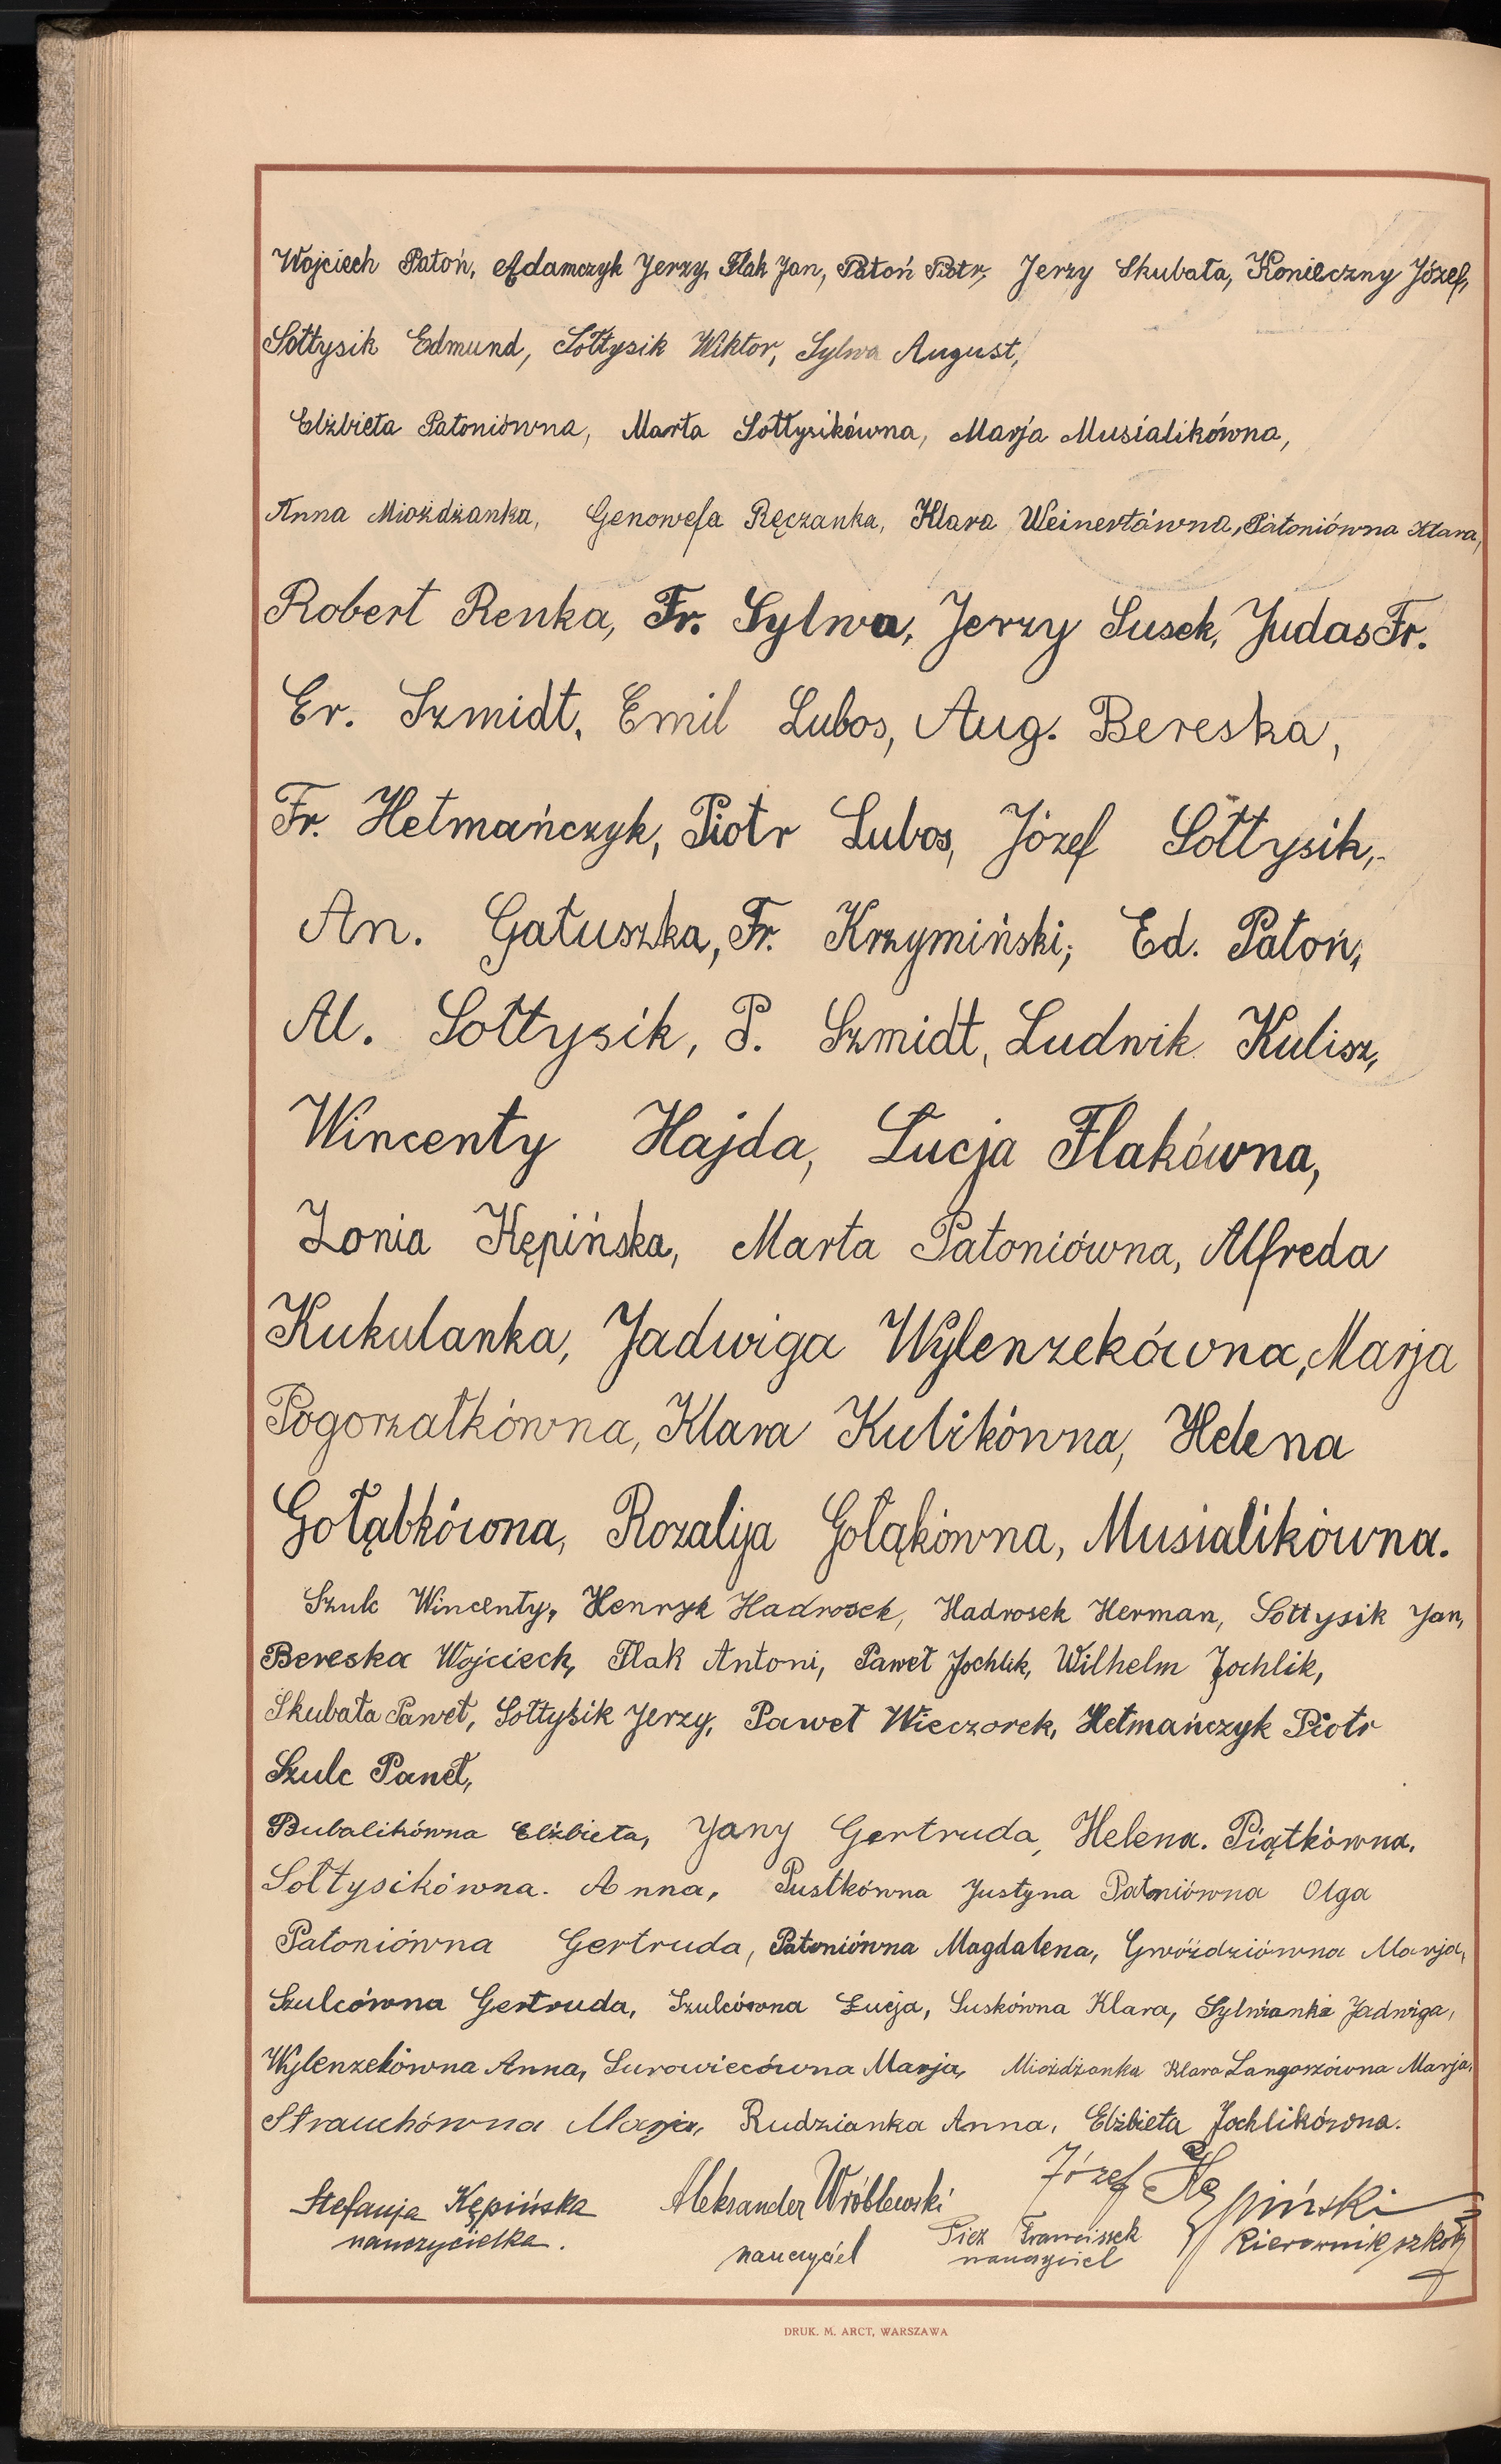 Wojciech Patoń, Adamczyk Jerzy, Flak Jan, Patoń Piotr, Jerzy Skubała, Konieczny Józef,
Sołtysik Edmund, Sołtysik Wiktor, Sylwa August,
Elżbieta Patoniówna, Marta Sołtysikówna, Marja Musialikówna,
Anna Miożdżanka, Genowefa Ręczanka, Klara Weinertówna, Patoniówna Klara,
Robert Renka, Fr. Sylwa, Jerzy Susek, Judas Fr.
Er. Szmidt, Emil Lubos, Aug. Bereska,
Fr. Hetmańczyk, Piotr Lubos, Józef Sołtysik,
An. Gałuszka, Fr. Krzymiński, Ed. Patoń,
Al. Sołtysik, P. Szmidt, Ludwik Kulisz,
Wincenty Hajda, Łucja Flakówna,
Zonia Kępińska, Marta Patoniówna, Alfreda
Kukulanka, Jadwiga Wylenzekówna, Marja
Pogorzałkówna, Klara Kulikówna, Helena
Gołąbkówna, Rozalija Gołąkówna, Musialikówna.
Szulc Wincenty, Henryk Hadrosek, Hadrosek Herman, Sołtysik Jan,
Bereska Wojciech, Flak Antoni, Paweł Jochlik, Wilhelm Jochlik,
Skubała Paweł, Sołtysik Jerzy, Paweł Wieczorek, Hetmańczyk Piotr
Szulc Paweł,
Bubalikówna Elżbieta, Jany Gertruda, Helena. Piątkówna.
Sołtysikówna. Anna, Pustkówna Justyna Patoniówna Olga
Patoniówna Gertruda, Patoniówna Magdalena, Gwóździówna Marja,
Szulcówna Gertruda, Szulcówna Łucja, Suskówna Klara, Sylwianka Jadwiga,
Wylenzekówna Anna, Surowiecówna Marja, Miożdżanka Klara Langoszówna Marja,
Strauchówna Marja, Rudzianka Anna, Elżbieta Jochlikówna.
Stefanja Kępińska Aleksander Wróblewski Józef Kępiński
nauczycielka. nauczyciel Franciszek nauczyciel Kierownik szkoły
DRUK. M. ARCT, WARSZAWA